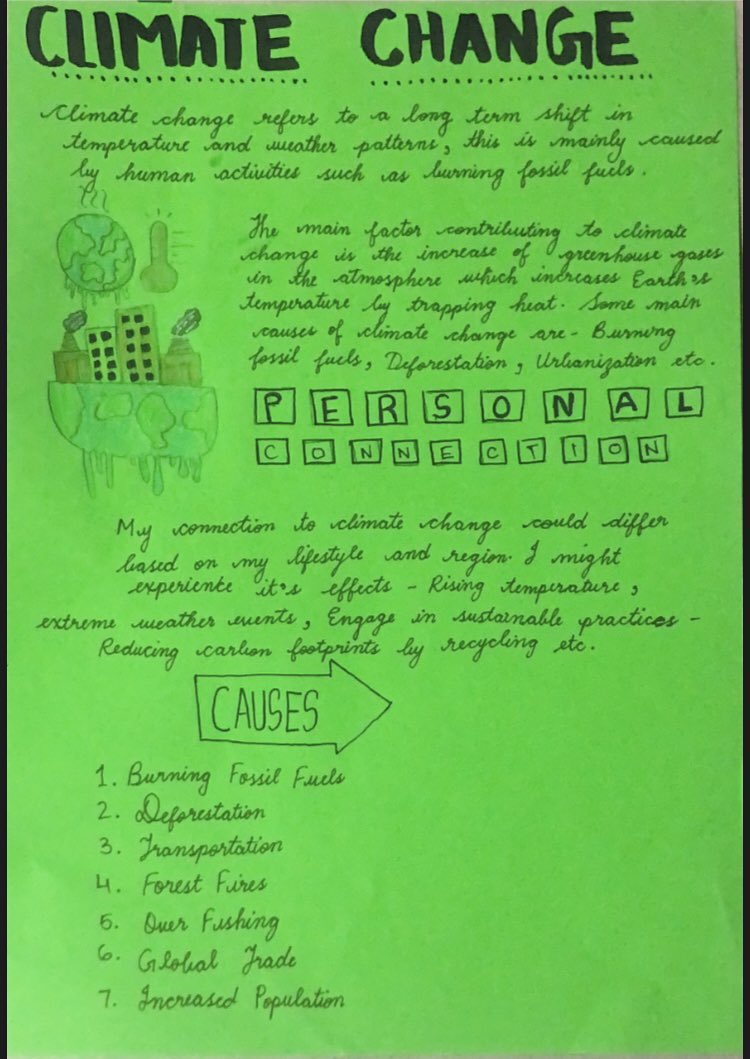 CLIMATE CHANGE
Climate change refers to a long term shift in
temperature and weather patterns, this is mainly caused
by human activities such as burning fossil fuels.
The main factor contributing to climate
change is the increase of greenhouse gases
in the atmosphere which increases Earth's
temperature by trapping heat. Some main
causes of climate change are - Burning
fossil fuels, Deforestation, Urbanization etc.
PERSONAL
CONNECTION
My connection to climate change could differ
based on my lifestyle and region. I might
experience it's effects - Rising temperature,
extreme weather events, Engage in sustainable practices -
Reducing carbon footprints by recycling etc.
CAUSES
1. Burning Fossil Fuels
2. Deforestation
3. Transportation
4. Forest Fires
5. Over Fishing
6. Global Trade
7. Increased Population